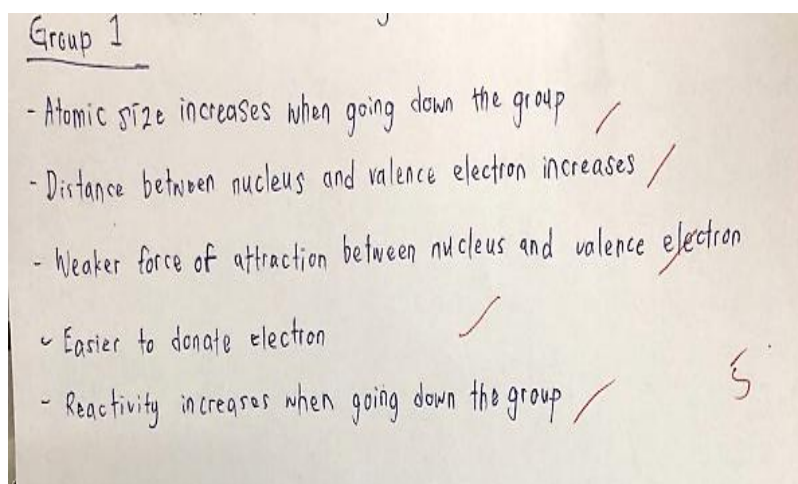 Group 1
- Atomic size increases when going down the group
- Distance between nucleus and valence electron increases
- Weaker force of attraction between nucleus and valence electron
- Easier to donate electron
- Reactivity increases when going down the group
5